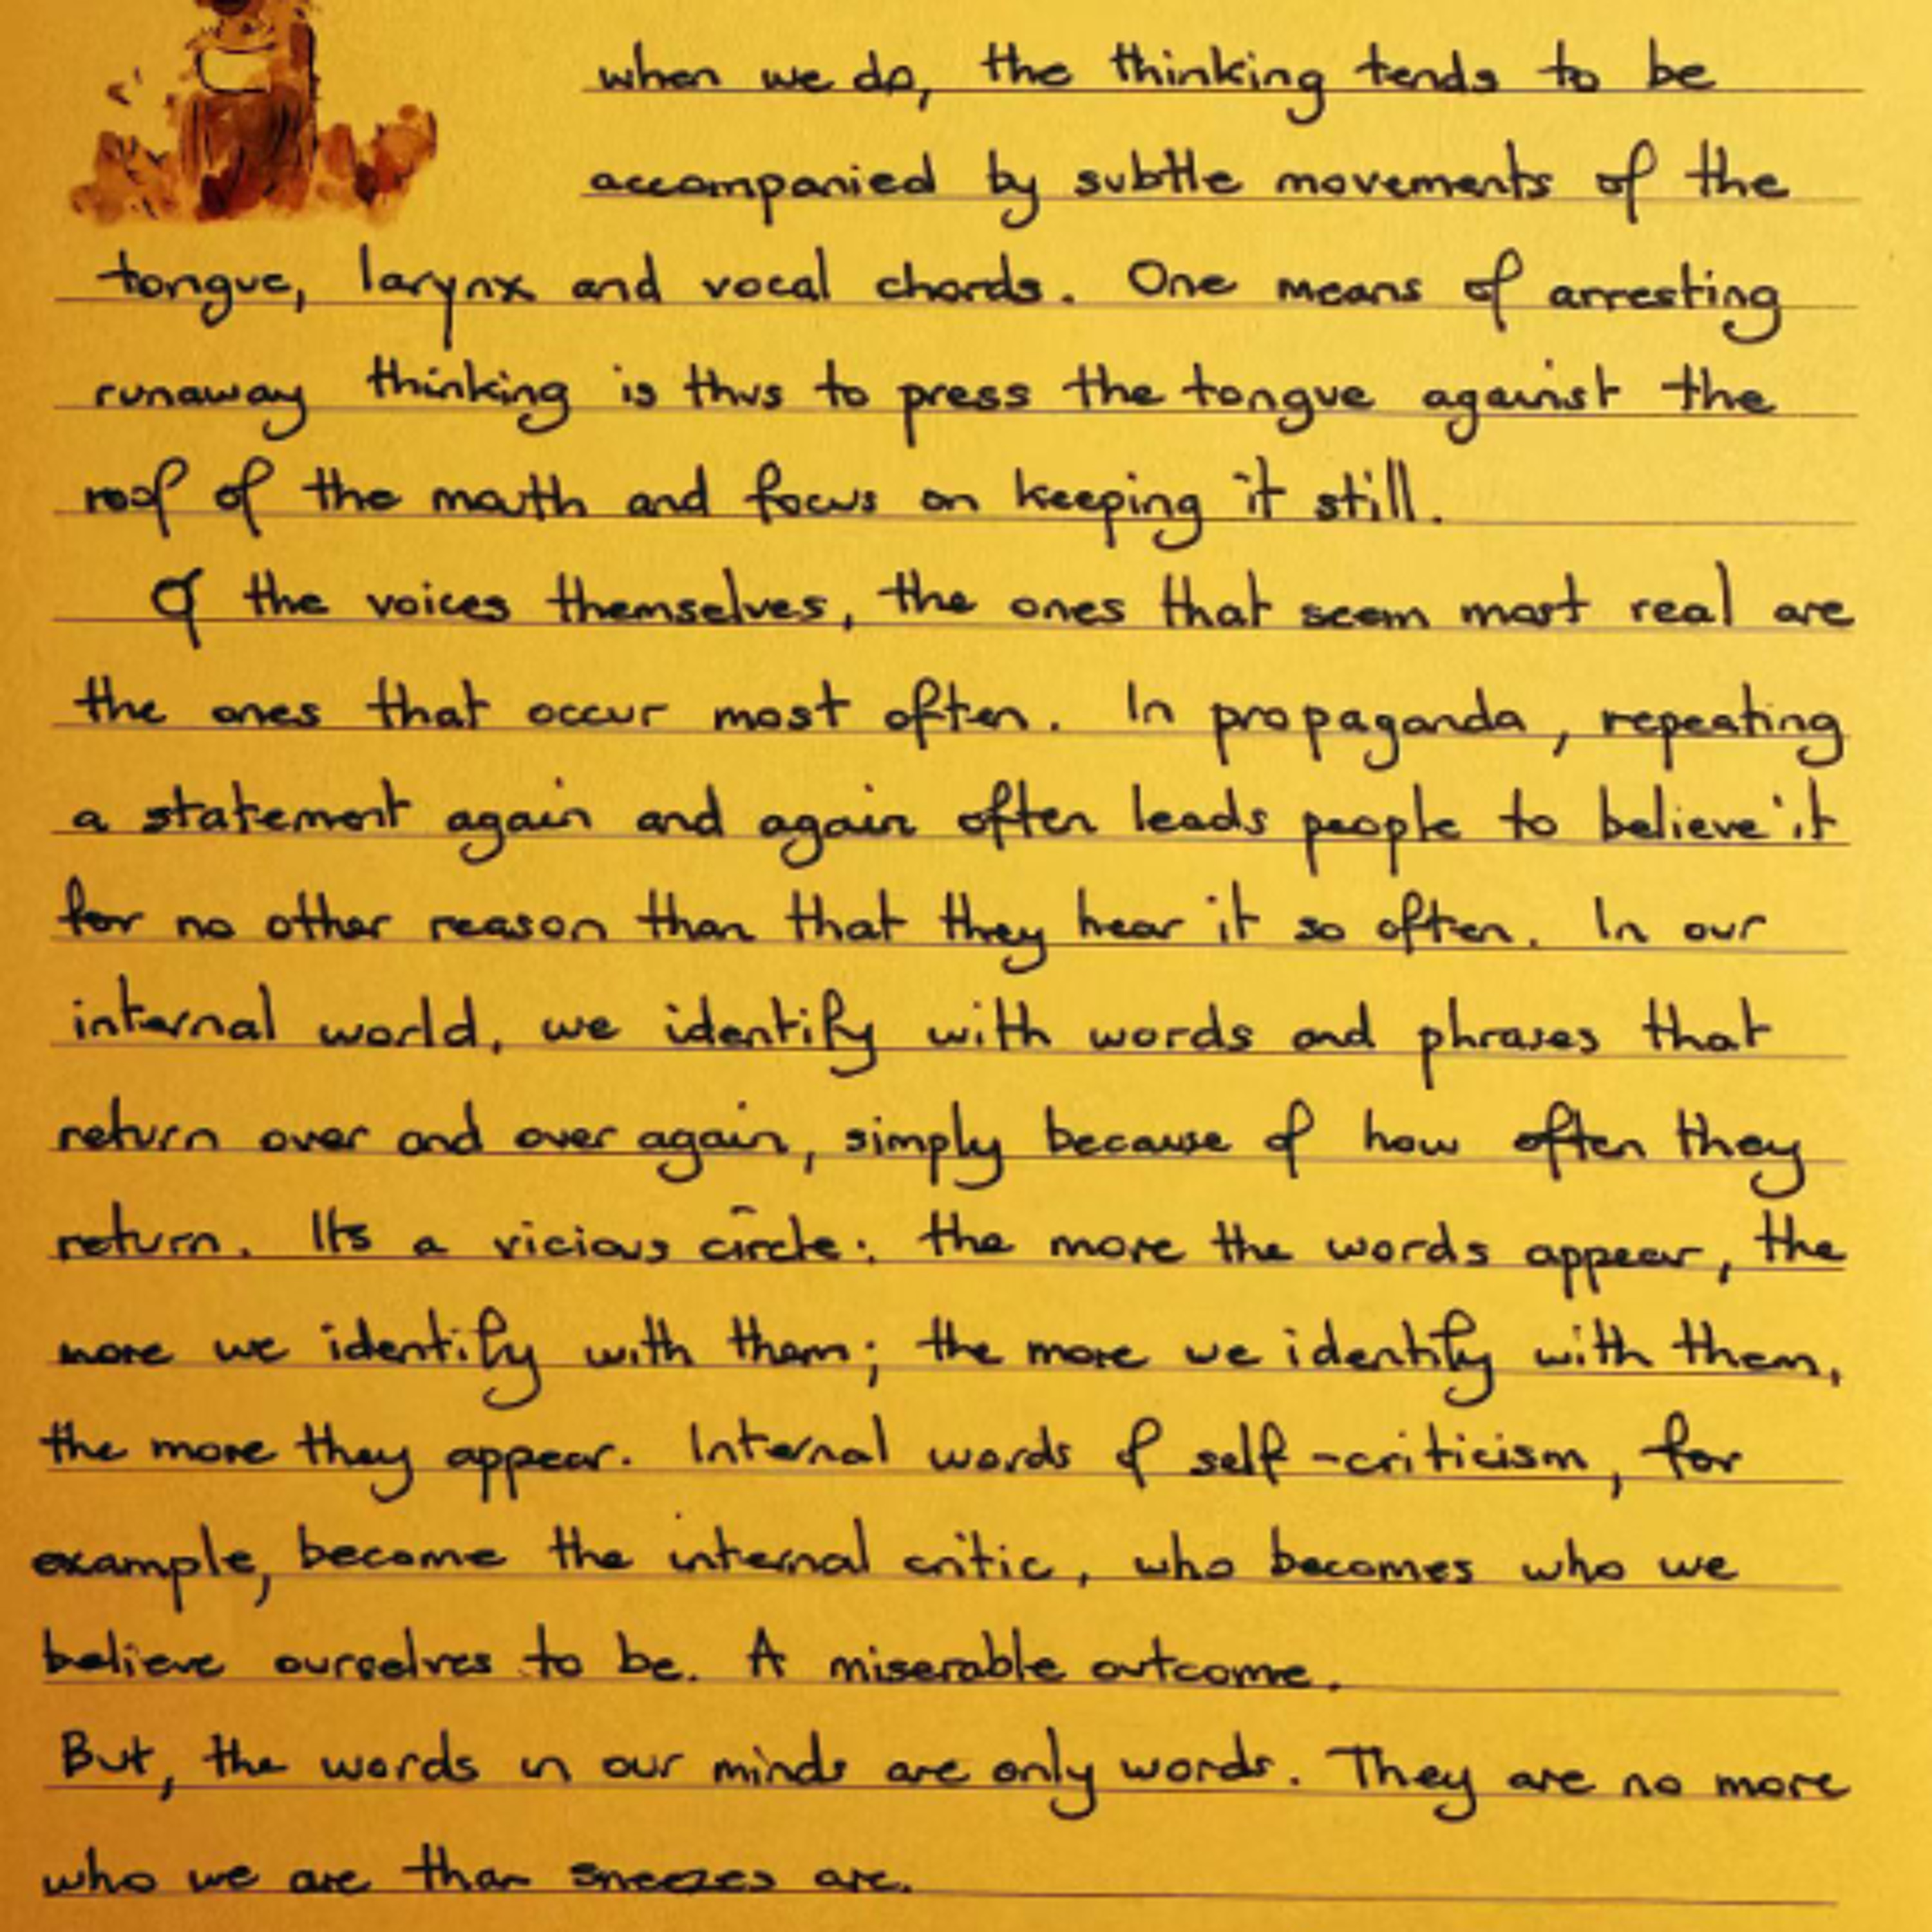 when we do, the thinking tends to be
accompanied by subtle movements of the
tongue, larynx and vocal chords. One means of arresting
runaway thinking is thus to press the tongue against the
roof of the mouth and focus on keeping it still.
Of the voices themselves, the ones that seem most real are
the ones that occur most often. In propaganda, repeating
a statement again and again often leads people to believe it
for no other reason than that they hear it so often. In our
internal world, we identify with words and phrases that
return over and over again, simply because of how often they
return. Its a vicious circle: the more the words appear, the
more we identify with them; the more we identify with them,
the more they appear. Internal words of self-criticism, for
example, become the internal critic, who becomes who we
believe ourselves to be. A miserable outcome.
But, the words in our minds are only words. They are no more
who we are than sneezes are.